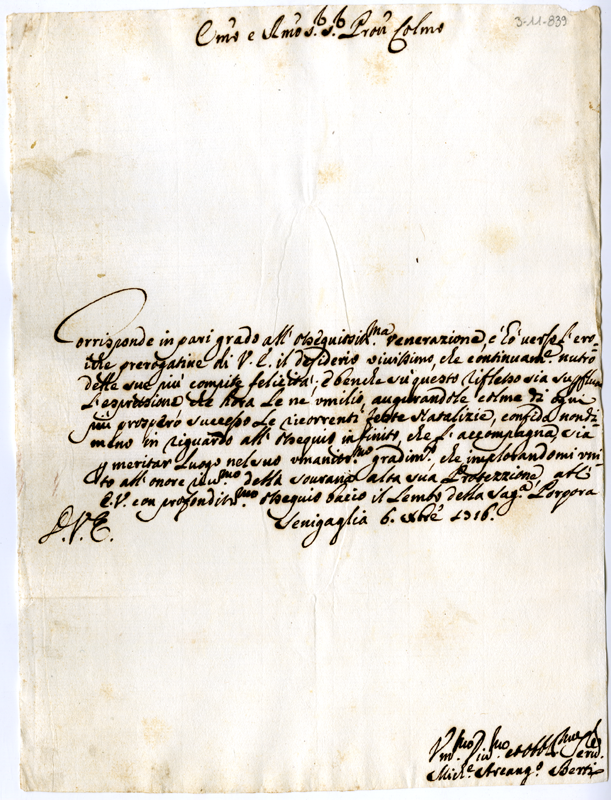 3-11-839
Emo e Rmo S.r S.r Proñ Colmo
Corrisponde in pari grado all' ossequiosis.ma venerazione, ch' hò verso l'ero-
iche prerogative di V. E. il desiderio vivissimo, che continuam.e nutro
delle sue più compite felicità; e benche sù questo riflesso sia superflua
l'espressione che hora le ne umilio, augurandole colme di ogni
più prospero successo le ricorrenti feste Natalizie, confido nondi-
meno in riguardo all' ossequio infinito, che l'accompagna, sia
p meritar luogo nel suo umaniss.mo gradim.o; che implorandomi uni-
to all' onore della sovrana alta sua Protezzione, all'
E.V. con profondiss.mo ossequio bacio il lembo della Sag.a Porpora
D. V. E.
Senigaglia 6. Xbre 1716.
Um.mo Div.mo et Obb.mo Serv.
Mich.e Arcang.o Berti